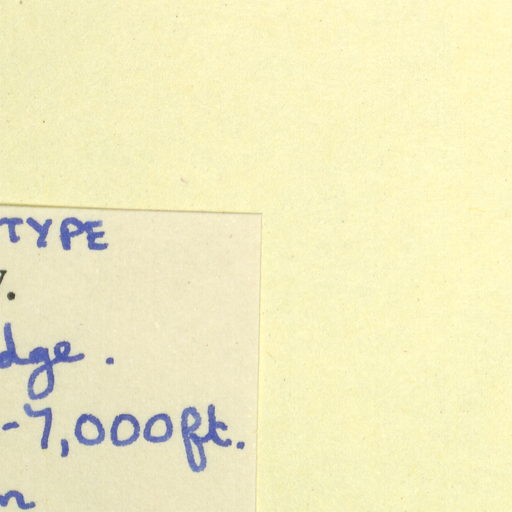 TYPE
y.
dge.
-7,000ft.